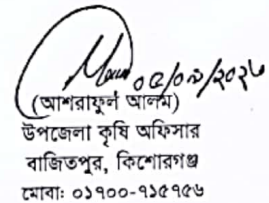 ০৫/০৯/২০২৩
(আশরাফুল আলম)
উপজেলা কৃষি অফিসার
বাজিতপুর, কিশোরগঞ্জ
মোবা: ০১৭০০-৭১৫৭৫৬